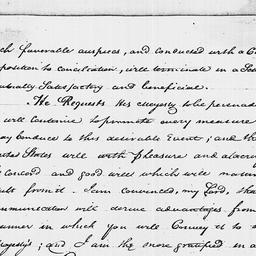 ch favorable auspices, and conducted with a C
position to conciliation, will terminate in a Trea
utually Satisfactory and beneficial.
He Requests His Majesty to be persuad
will Continue to promote every measure
ay Conduce to this desirable Event; and th
nited States will with pleasure and alacri
Concord and good will which will natur
ult from it. I am convinced, my Lord, tha
ommunication will derive advantages from
anner in which you will Convey it to
ajesty; and I am the more gratified in a